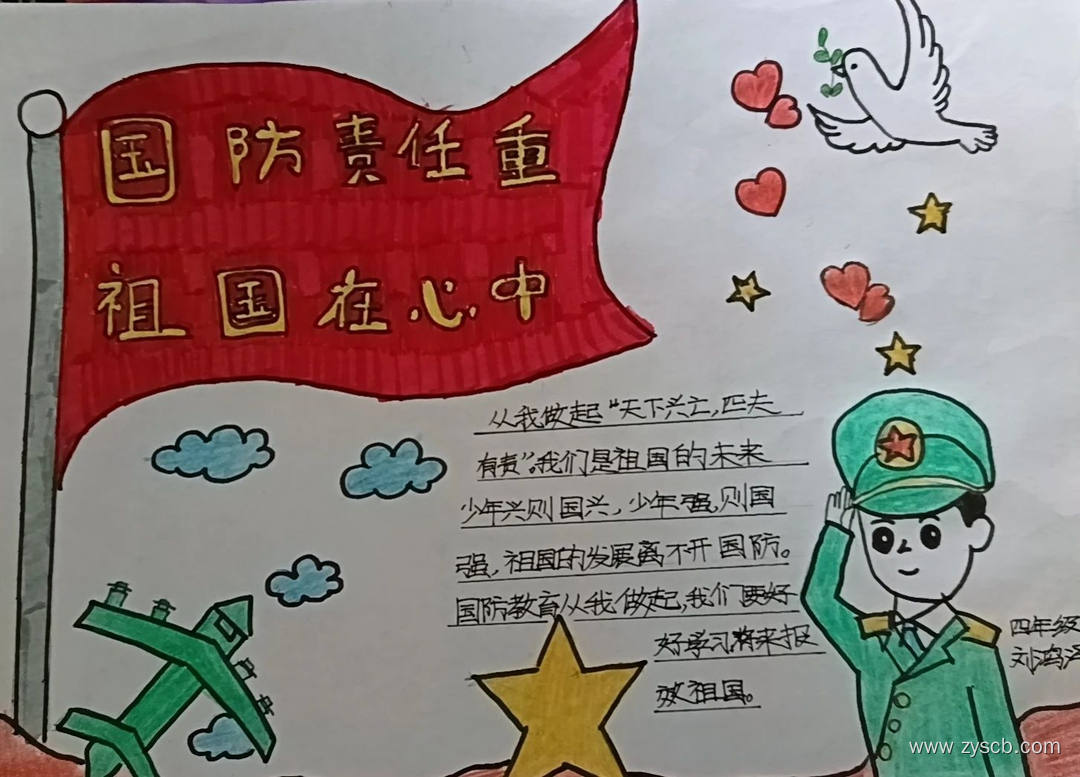 国防责任重
祖国在心中
从我做起“天下兴亡,匹夫
有责”。我们是祖国的未来
少年兴则国兴，少年强，则国
强，祖国的发展离不开国防。
国防教育从我做起,我们要好
好学习将来报
效祖国。
四年级
刘鸿泽
www.zyscb.com